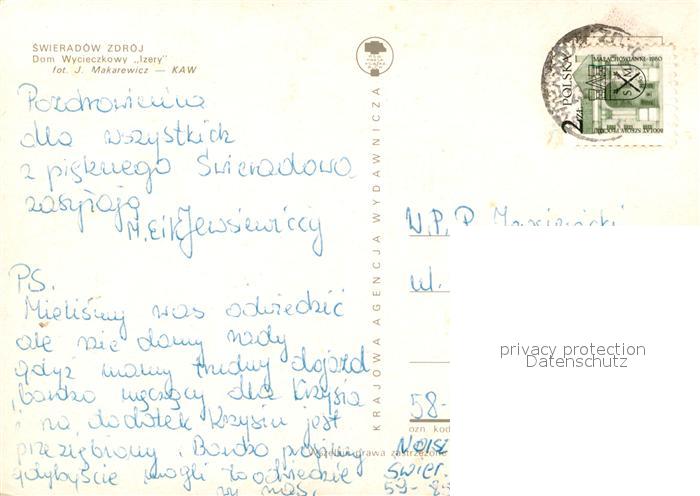 ŚWIERADÓW ZDRÓJ
Dom Wycieczkowy „Izery"
fot. J. Makarewicz — KAW
Pozdrowienia
dla wszystkich
z pięknego Świeradowa
zasyłają
M. E i K Jewsiewiccy
PS.
Mieliśmy was odwiedzić
ale nie damy rady
gdyż mamy trudny dojazd
bardzo męczący dla Krzysia
i na dodatek Krzysiu jest
przeziębiony. Bardzo prosimy
gdybyście mogli to odwiedźcie
wy nas.
KRAJOWA AGENCJA WYDAWNICZA
POLSKA
2 zł
MAŁACHOWIANKI-1980
800 LAT SZKOŁY PŁOCKIEJ
W.P.P.
ul.
58-
ozn. kod
prawa zastrzeżone
Świer.
59-8
privacy protection
Datenschutz